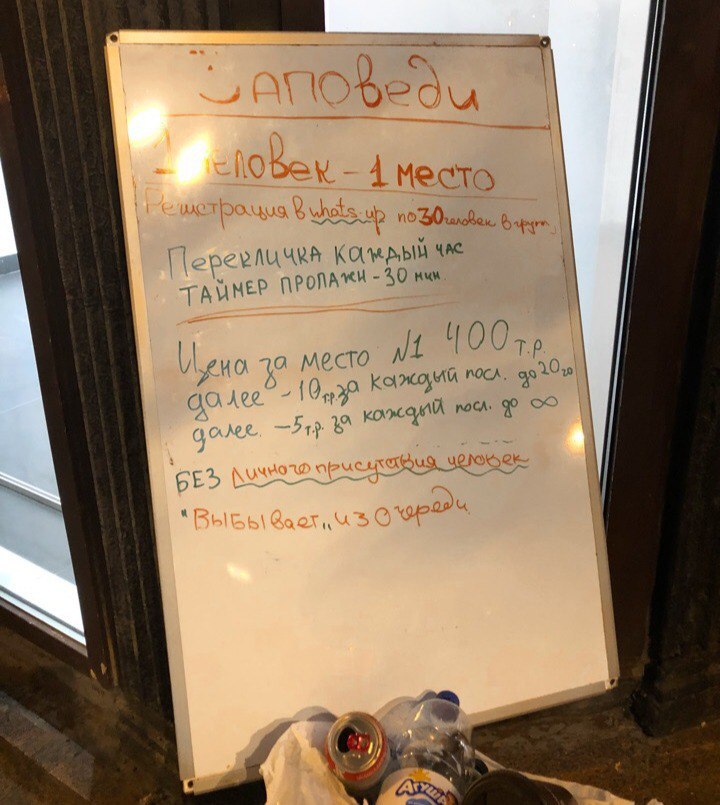 Заповеди
1 человек - 1 место
Регистрация в whats-up по 30 человек в групп.
Перекличка каждый час
Таймер пропажи - 30 мин.
Цена за место N1 400 т.р.
далее -10т.р за каждый посл. до 20го
далее -5т.р. за каждый посл. до ∞
БЕЗ личного присутствия человек
"Выбывает„ из очереди
Агуша